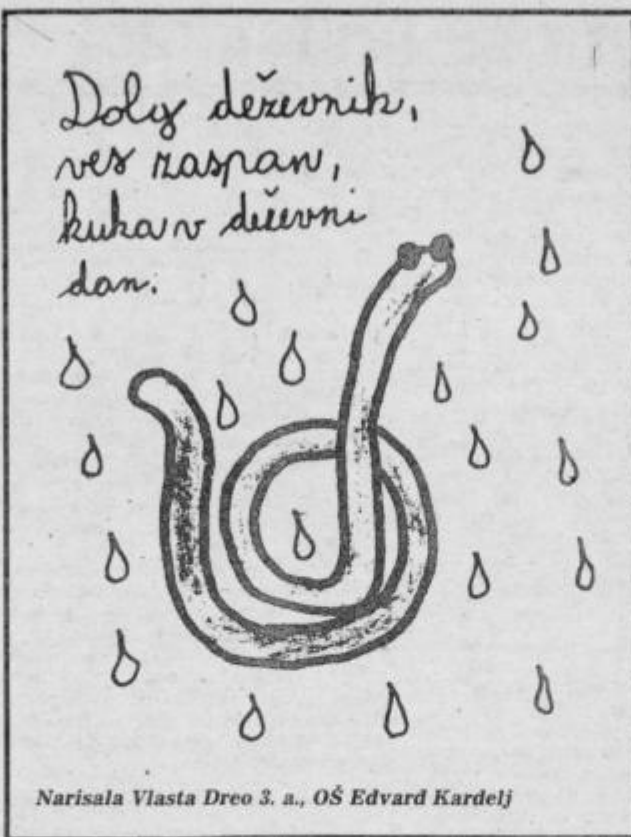 Dolg deževnik,
ves zaspan,
kuka v deževni
dan.
Narisala Vlasta Dreo 3. a., OŠ Edvard Kardelj